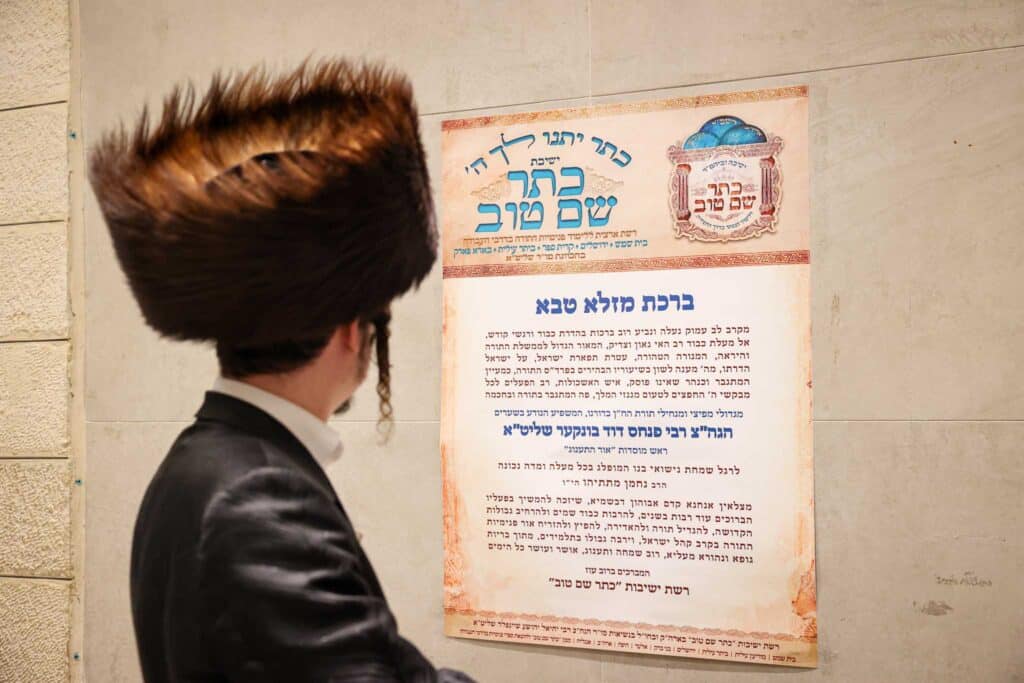 כתר יתנו לך ה'
ישיבת
כתר
שם טוב
רשת ארצית ללימוד פנימיות התורה כדרכי העבודה
בית שמש • ירושלים • קרית ספר • ביתר עילית • בארא פארק
בתכוונת מו"ר שליט"א
כתר
שם טוב
ברכת מזלא טבא
מקרב לב עמוק נעלה ונביע רוב ברכות בהדרת כבוד ורגשי קודש,
אל מעלת כבוד רב האי גאון וצדיק, המאור הגדול לממשלת התורה
והיראה, המנורה הטהורה, עטרת תפארת ישראל, על ישראל
הדרתו, מה' מענה לשון בשיעוריו הבהירים בפרד"ס התורה, כמעיין
המתגבר וכנהר שאינו פוסק, איש האשכולות, רב הפעלים לכל
מבקשי ה' החפצים לטעום מגנזי המלך, פה המתגבר בתורה ובחכמה
מגדולי מפיצי ומנחילי תורת הח"ן בדורנו, המשפיע הנודע בשערים
הגה"צ רבי פנחס דוד בונקער שליט"א
ראש מוסדות "אור התענוג"
לרגל שמחת נישואי בנו המופלג בכל מעלה ומדה נכונה
הרב נחמן מתתיהו הי"ו
מצלאין אנחנא קדם אבוהון דבשמיא, שיזכה להמשיך בפעליו
הברוכים עוד רבות בשנים, להרבות כבוד שמים ולהרחיב גבולות
הקדושה, להגדיל תורה ולהאדירה, להפיץ ולהזריח אור פנימיות
התורה בקרב קהל ישראל, וירבה גבולו בתלמידים, מתוך בריות
גופא ונהורא מעליא, רוב שמחה ותענוג, אושר ועושר כל הימים
המברכים ברוב עוז
רשת ישיבות "כתר שם טוב"
רשת ישיבות "כתר שם טוב" בארה"ק ובחו"ל בנשיאות מו"ר הגה"צ רבי יחיאל יהושע שיינפלד שליט"א